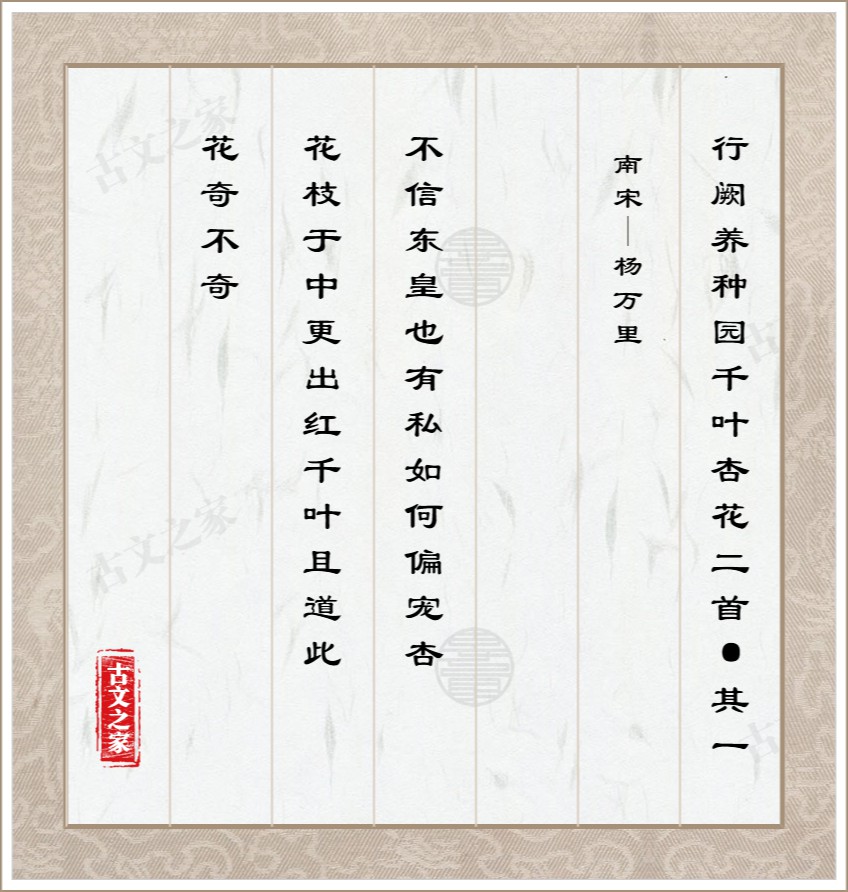 行阙养种园千叶杏花二首●其一
南宋—杨万里
不信东皇也有私如何偏宠杏
花枝于中更出红千叶且道此
花奇不奇
古文之家
古文之家
古文之家
古
古